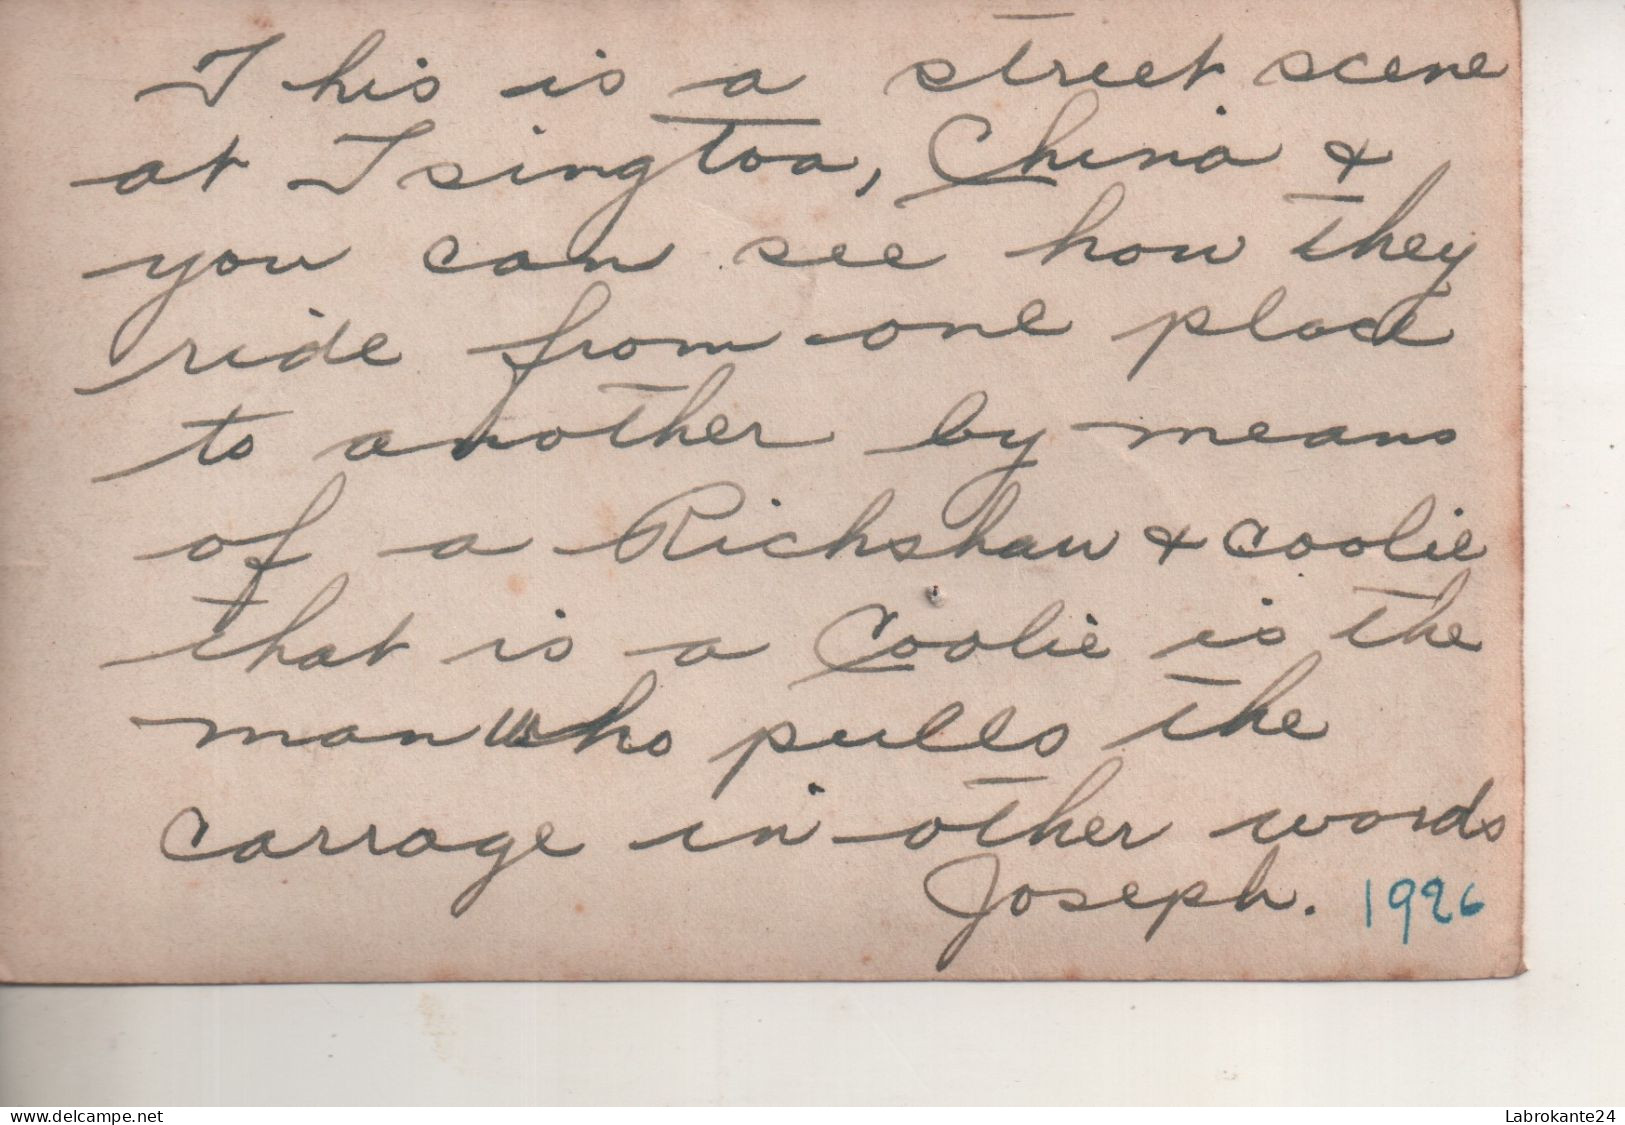 This is a street scene
at Tsingtoa, China &
you can see how they
ride from one place
to another by means
of a Richshaw & coolie
that is a Coolie is the
man who pulls the
carrage in other words
Joseph. 1926
www.delcampe.net
Labrokante24